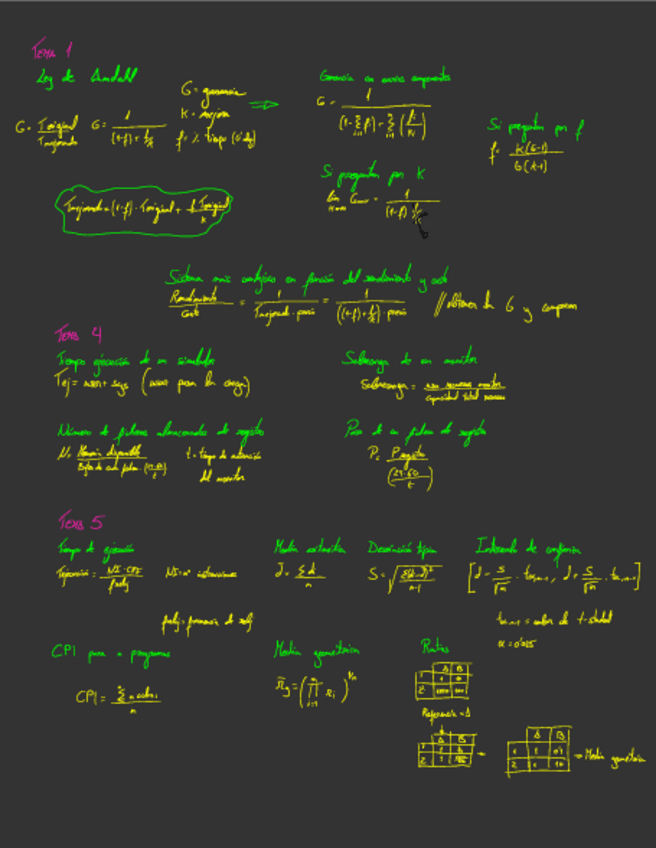 Tema 1
Ley de Amdahl
G = Toriginal / Tmejorado
G = 1 / ((1-f) + f/k)
G = ganancia
K = mejora
f = % tiempo
⇒
Ganancia en varios componentes
G = 1 / ((1 - Σ fi) + Σ (fi/ki))
Si preguntan por f
f = K(G-1) / G(K-1)
Tmejorado = (1-f) · Toriginal + f · Toriginal / K
Si preguntan por K
lim = 1 / (1-f)
Sistema mas ventajoso en función del rendimiento y coste
Rendimiento / Coste = 1 / (Tmejorado · precio) = 1 / (((1-f) + f/k) · precio) // obtener la G y comparar
Tema 4
Tiempo ejecución de un simulador
Tej = user + sys
Sobrecarga de un monitor
Sobrecarga = uso recursos monitor / capacidad total recursos
Número de ficheros almacenados de registro
N = Memoria disponible
t = tiempo de
del monitor
Peso de un fichero de registro
P = P registro / (24·60 / t)
Tema 5
Tiempo de ejecución
Tejecución = NI · CPI / freloj
NI = nº instrucciones
freloj = frecuencia de reloj
Media aritmética
d̄ = Σd / n
Desviación típica
S = √(Σ(d-d̄)² / (n-1))
Intervalo de confianza
[d̄ - S/√n · tα,n-1, d̄ + S/√n · tα,n-1]
tα,n-1 = valor de t-student
α = 0'025
CPI para n programas
CPI =
Media geométrica
r̄g = (∏ ri)^1/n
Ratios
A B
Referencia = A
A B
A B
1 1 0'1
2 1 10
→ Media geométrica